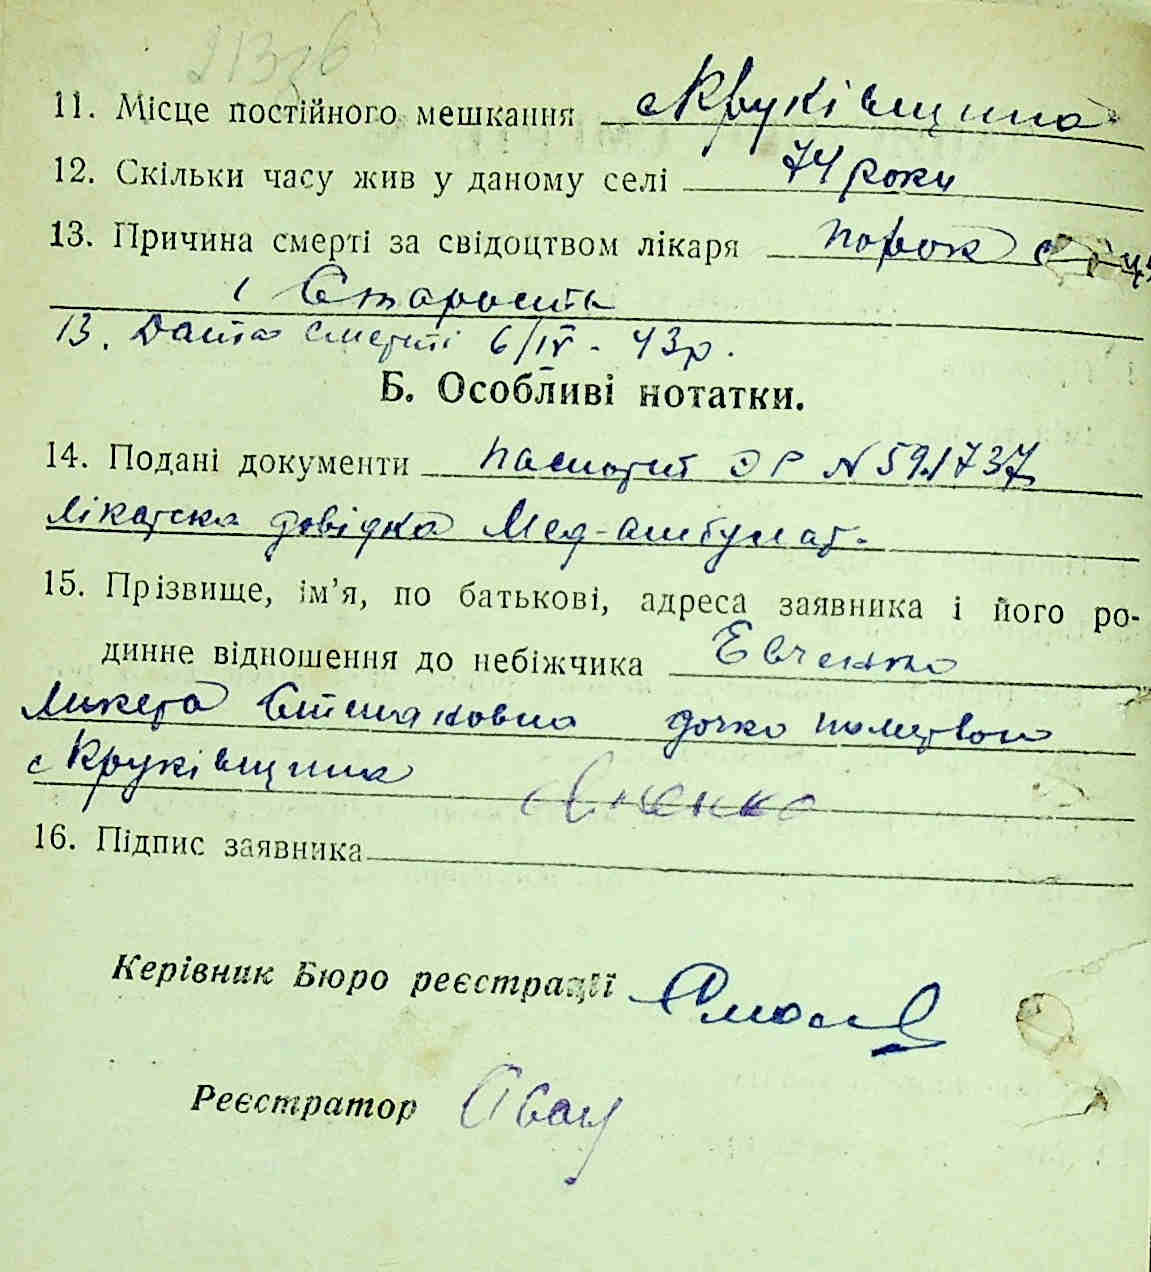 11. Місце постійного мешкання с Круківщина
12. Скільки часу жив у даному селі 74 роки
13. Причина смерті за свідоцтвом лікаря порок
і Старость
13. Дата смерті 6/IV - 43р.
Б. Особливі нотатки.
14. Подані документи паспорт ЭР №591737
лікарска довідка Мед-амбулат.
15. Прізвище, ім’я, по батькові, адреса заявника і його ро-
динне відношення до небіжчика Евченко
Ликера дочка
с Круківщина
16. Підпис заявника
Керівник Бюро реєстрації
Реєстратор